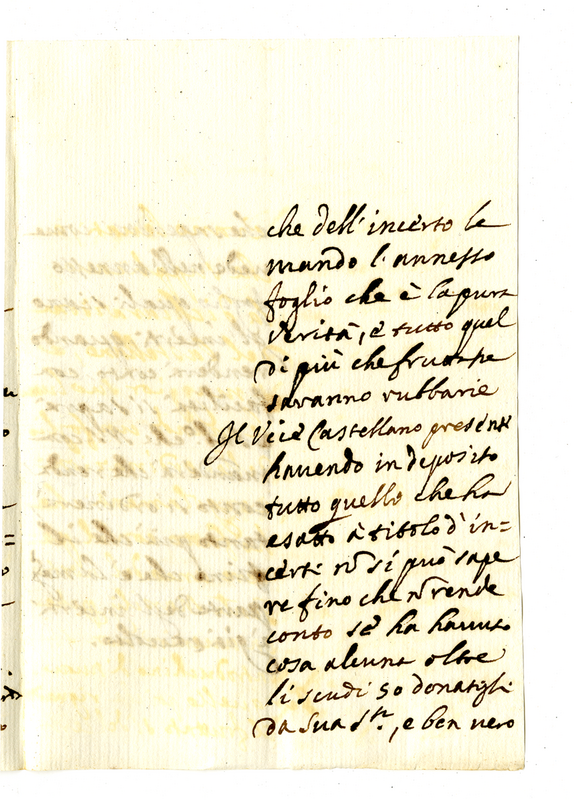 che dell'incerto le
mando l'annesso
foglio che è la pura
verità, e tutto quel
di più che fruttasse
saranno rubbarie
Il Vice Castellano presente
havendo in deposito
tutto quello che ha
esatto à titolo d'in=
certi nõ si può sape
re fino che nõ rende
conto se ha havuto
cosa alcuna oltre
li scudi 50 donatigli
da Sua S.tà, e ben vero